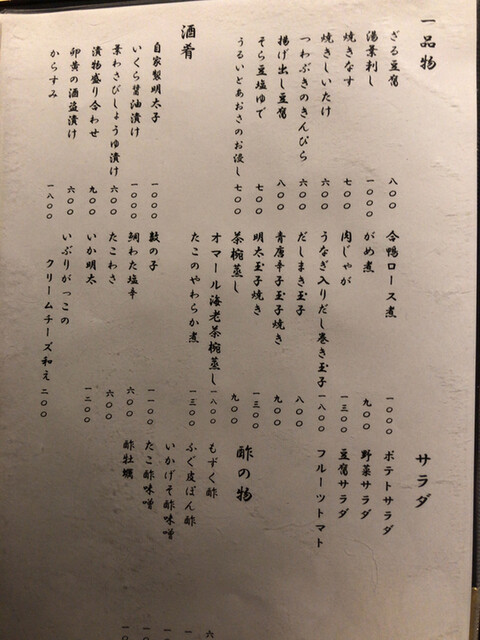 一品物
ざる豆腐 八〇〇
湯葉刺し 一〇〇〇
焼きなす 七〇〇
焼きしいたけ 六〇〇
つわぶきのきんぴら 六〇〇
揚げ出し豆腐 八〇〇
そら豆塩ゆで 七〇〇
うるいとあおさのお浸し 七〇〇
酒肴
自家製明太子 一〇〇〇
いくら醤油漬け 一〇〇〇
葉わさびしょうゆ漬け 六〇〇
漬物盛り合わせ 九〇〇
卵黄の酒盗漬け 六〇〇
からすみ 一八〇〇
合鴨ロース煮 一〇〇〇
がめ煮 九〇〇
肉じゃが 一三〇〇
うなぎ入りだし巻き玉子 一八〇〇
だしまき玉子 八〇〇
青唐辛子玉子焼き 九〇〇
明太玉子焼き 一三〇〇
茶椀蒸し 九〇〇
オマール海老茶椀蒸し 一八〇〇
たこのやわらか煮 一三〇〇
数の子 一一〇〇
鯛わた塩辛 六〇〇
たこわさ 六〇〇
いか明太 一二〇〇
いぶりがっこの
クリームチーズ和え 二〇〇
サラダ
ポテトサラダ
野菜サラダ
豆腐サラダ
フルーツトマト
酢の物
もずく酢
ふぐ皮ぽん酢
いかげそ酢味噌
たこ酢味噌
酢牡蠣